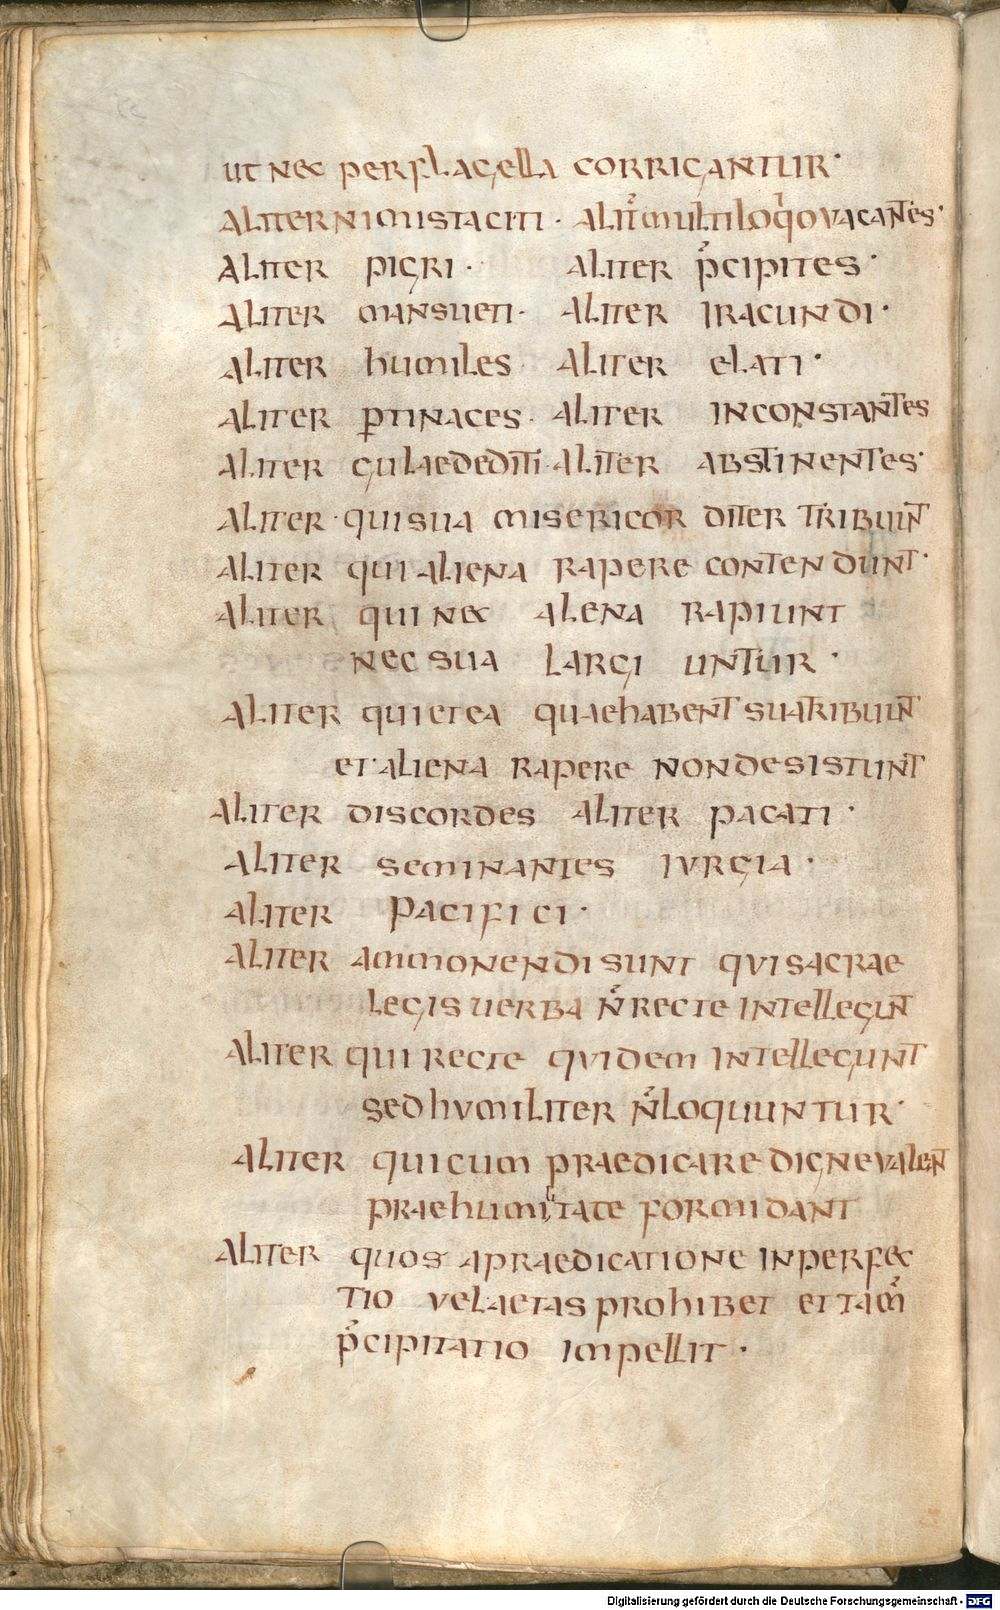 ut nec per flagella corrigantur·
aliter nimis taciti· alit̃ multiloq̊o vacantes·
aliter pigri· aliter p̃cipites·
aliter mansueti· aliter iracundi·
aliter humiles aliter elati·
aliter ꝑtinaces· aliter inconstantes
aliter gulae dediti· aliter abstinentes·
aliter· qui sua misericorditer tribuunt
aliter qui aliena rapere contendunt·
aliter qui nec alena rapiunt
nec sua largiuntur·
aliter qui et ea quae habent sua tribuunt
et aliena rapere non desistunt
aliter discordes aliter pacati·
aliter seminantes iurgia·
aliter pacifici·
aliter ammonendi sunt qui sacrae
legis uerba ñ recte intellegunt
aliter qui recte quidem intellegunt
sed humiliter ñ loquuntur·
aliter qui cum praedicare digne valent
prae humilitate formidant
aliter quos a praedicatione inperfec
tio vel aetas prohibet et tam̃
p̃cipitatio impellit·
Digitalisierung gefördert durch die Deutsche Forschungsgemeinschaft - DFG